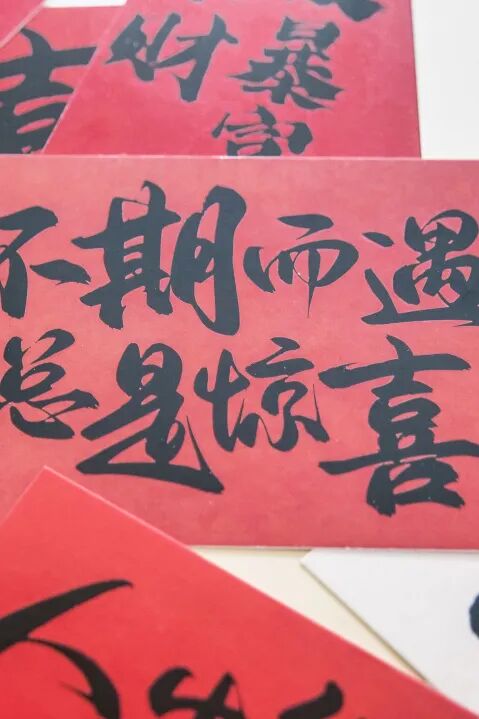 吉
财
暴富
不期而遇
总是惊喜